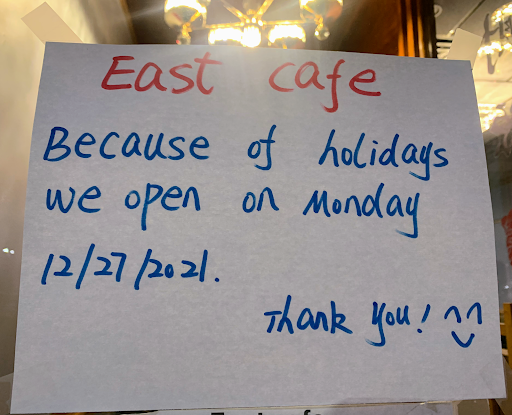 East cafe
Because of holidays
we open on Monday
12/27/2021.
Thank you! ^‿^